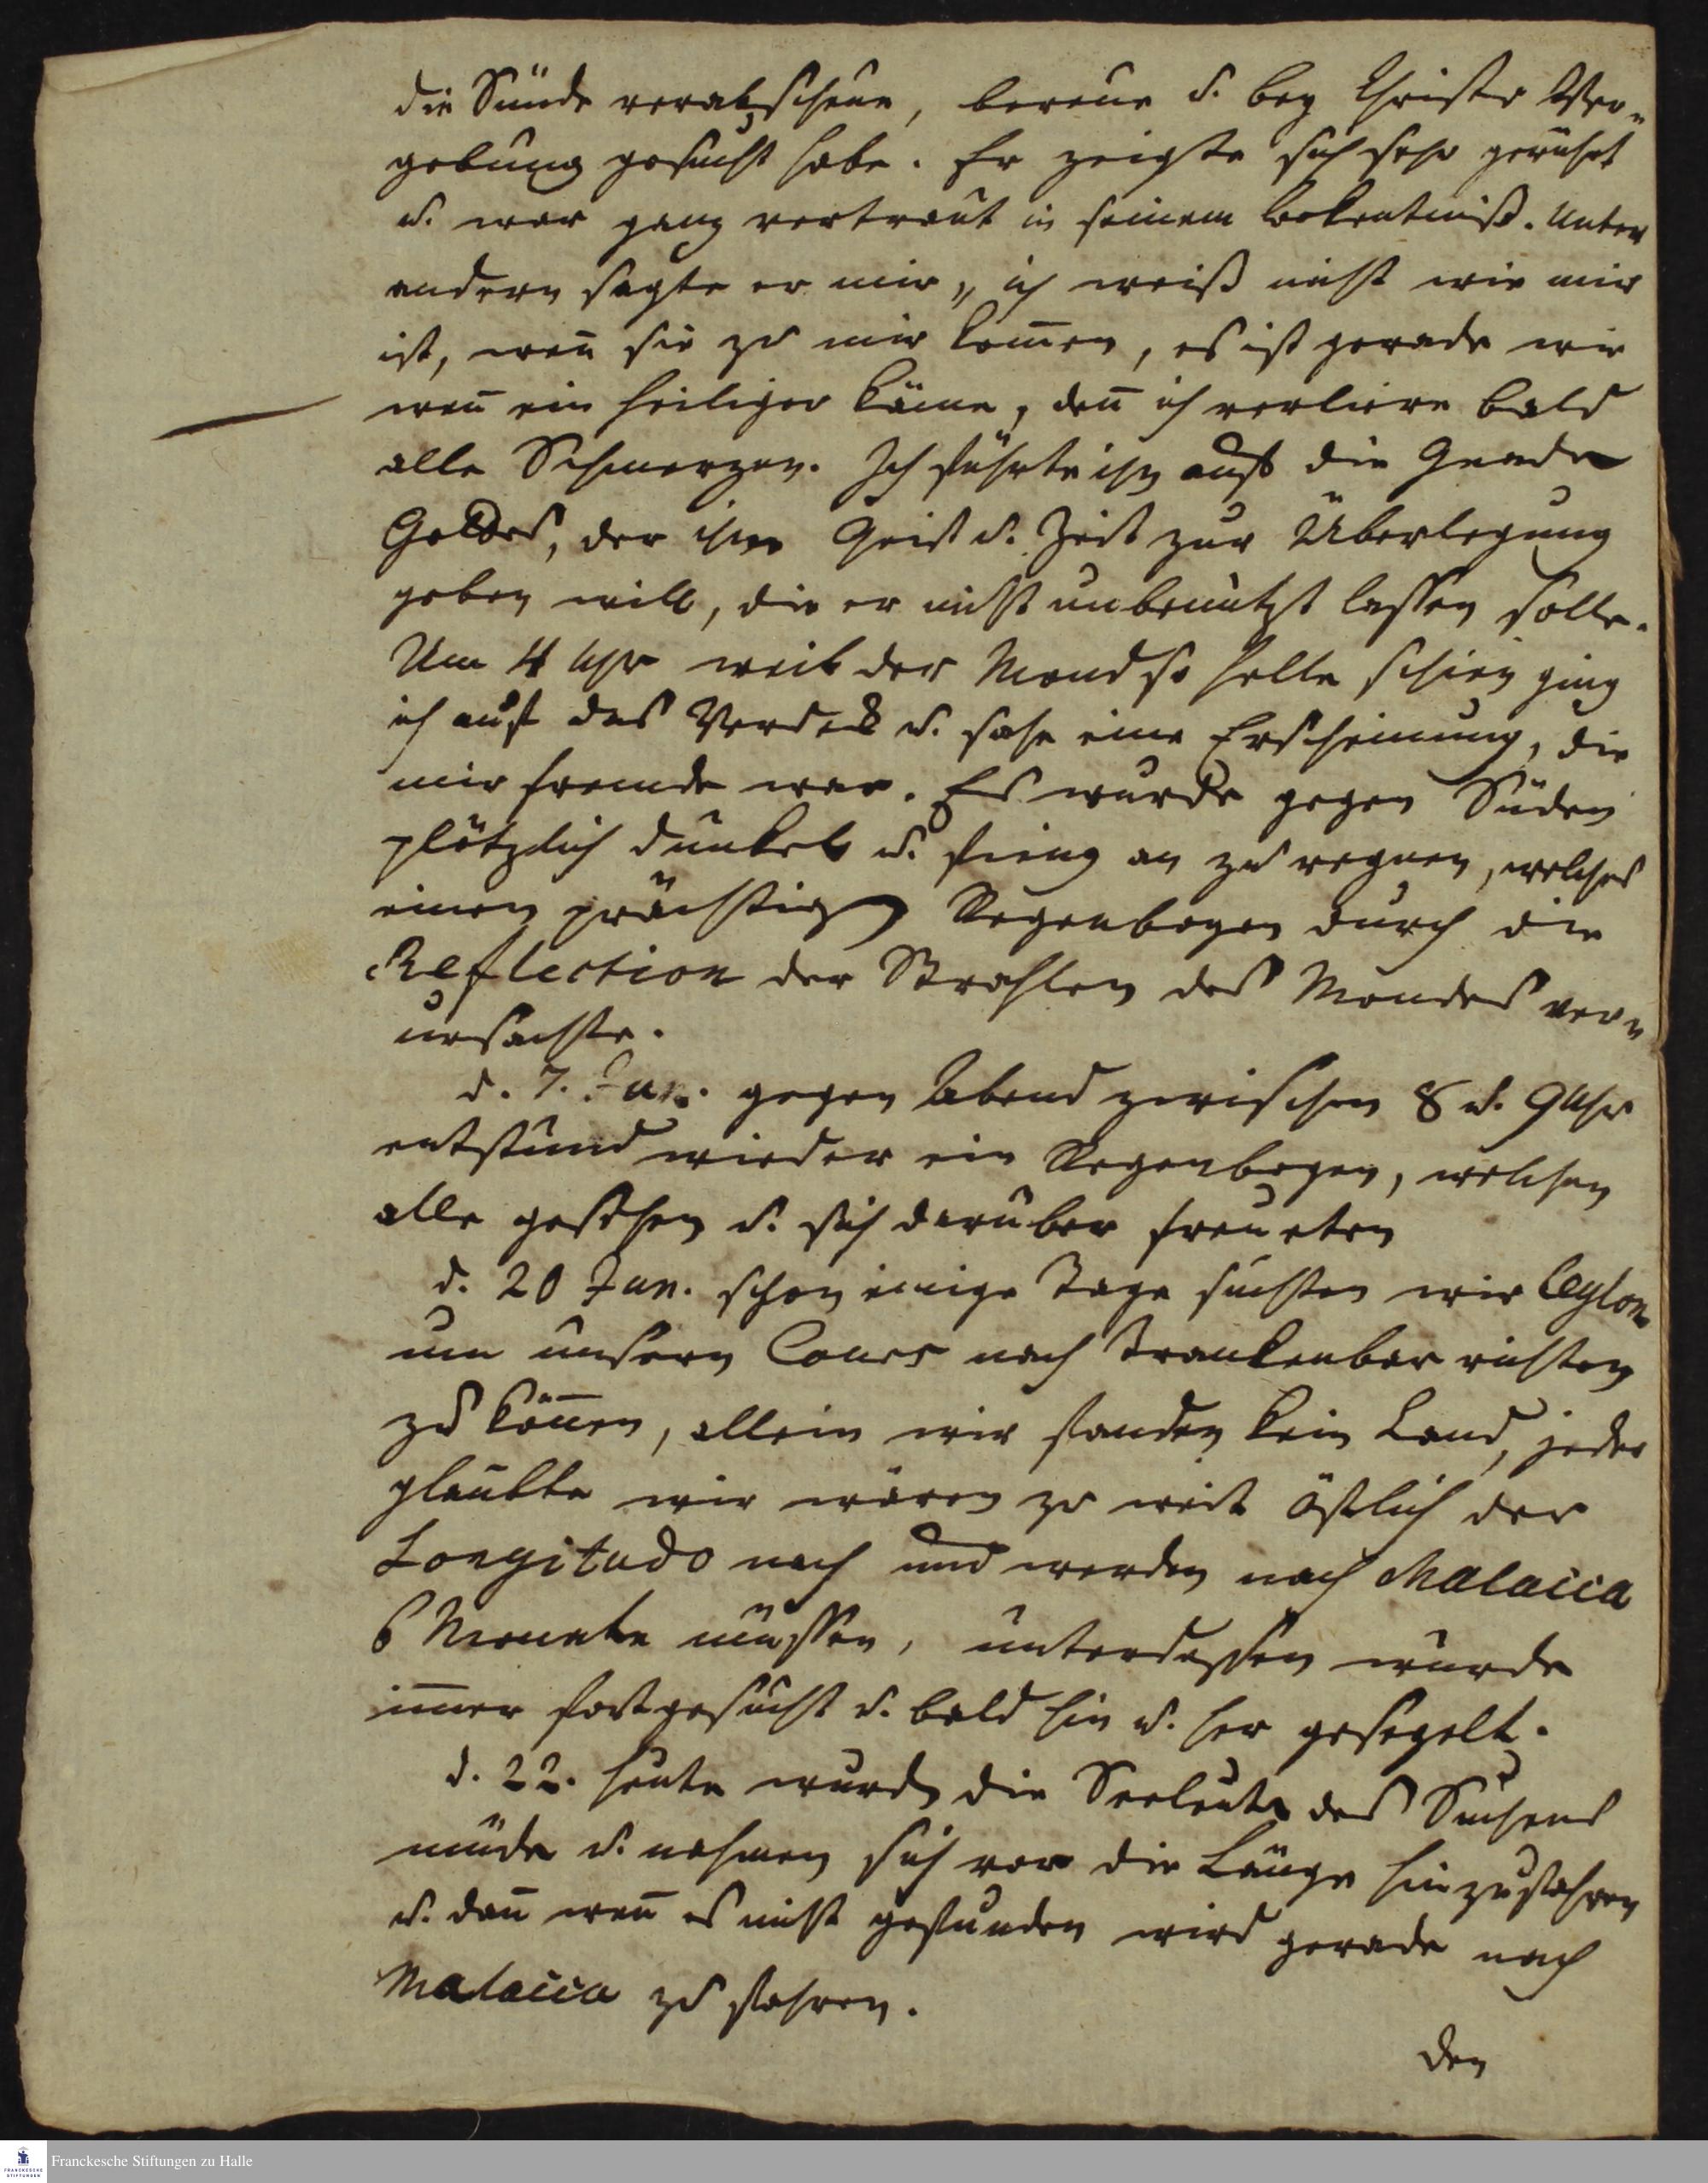 die Sünde verabscheue, bereue u. bey Christo Ver-
gebung gesucht habe. Er zeigte sich sehr gerührt
u. war ganz vertraut in seinem bekentniß. Unter
andern sagte er mir, ich weiß nicht wie mir
ist, weñ sie zu mir kom̄en, es ist gerade wie
weñ ein heiliger käme, deñ ich verliere bald
alle Schmerzen. Ich führte ihn auf die Gnade
Gottes, der ihm Geist u. Zeit zur Überlegung
geben will, die er nicht unbenutzt lassen solle.
Um 4 Uhr weil der Mond so helle schien ging
ich auf das Verdeck u. sahe eine Erscheinung, die
mir fremde war. Es wurde gegen Süden
plötzlich dunkel u. fieng an zu regnen, welches
einen prächtigen Regenbogen durch die
Reflection der Strahlen des Mondes ver-
ursachte.
d. 7. Jun. gegen Abend zwischen 8 u. 9 Uhr
entstund wieder ein Regenbogen, welchen
alle gesehen u. sich darüber freueten
d. 20 Jun. schon einige Tage suchten wir Ceylon
um unsern Cours nach Trankenbar richten
zu köñen, allein wir fanden kein Land, jeder
glaubte wir wären zu weit östlich der
Longitudo nach und werden nach Malacca
6 Monate müssen, unterdessen wurde
im̄er fortgesucht u. bald hin u. her gesegelt.
d. 22. heute wurden die Seeleute des Suchens
müde u. nahmen sich vor die Länge hinzufahren
u. dañ weñ es nicht gefunden wird gerade nach
Malacca zu fahren.
den
Franckesche Stiftungen zu Halle
FRANCKESCHE
STIFTUNGEN